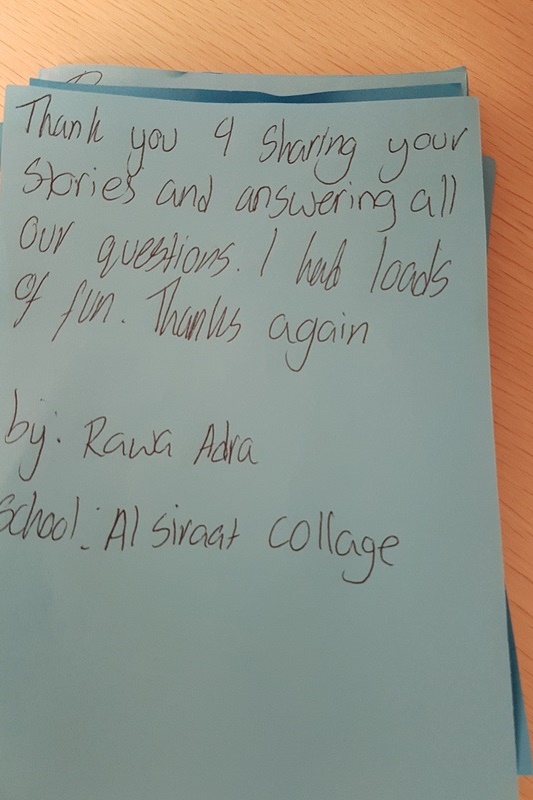 Thank you 4 Sharing your
stories and answering all
our questions. I had loads
of fun. Thanks again
by: Rawa Adra
School: Al siraat collage